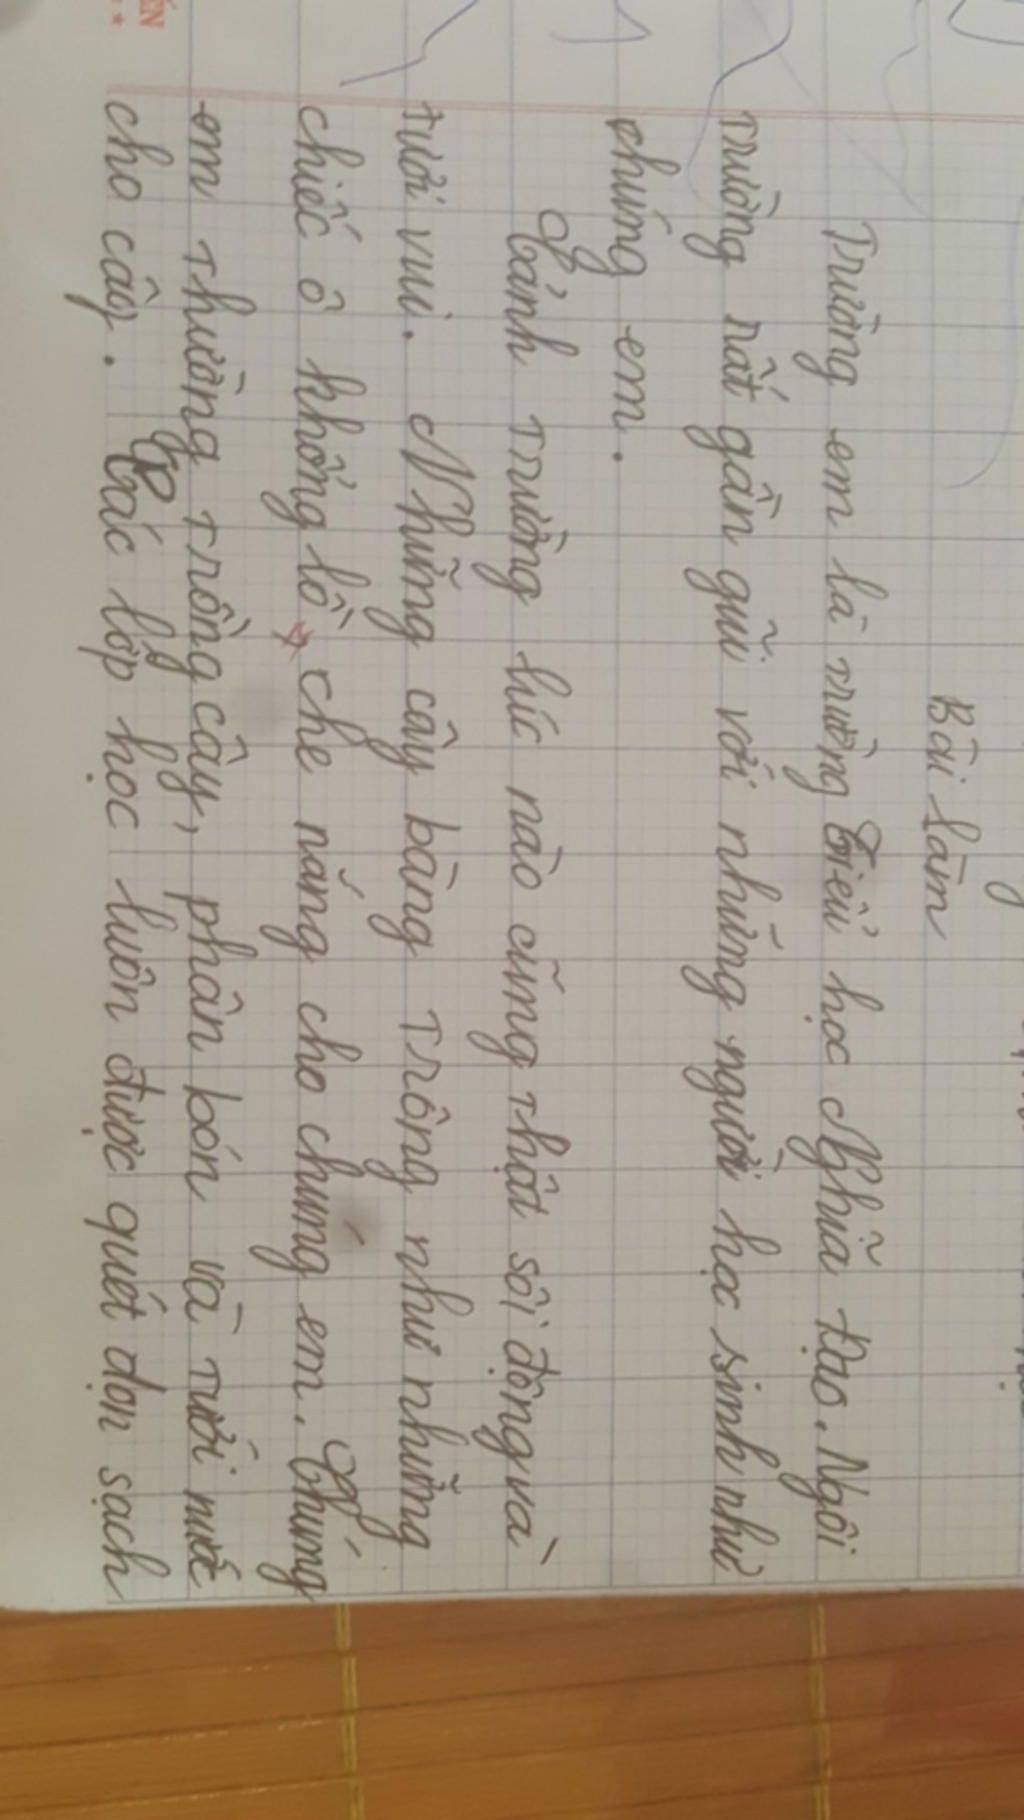 Bài làm
Trường em là trường Tiểu học Nghĩa Đạo. Ngôi
trường rất gần gũi với những người học sinh như
chúng em.
Cảnh trường lúc nào cũng thật sôi động và
tươi vui. Những cây bàng trông như những
chiếc ô khổng lồ che nắng cho chúng em. Chúng
em thường trồng cây, phân bón và tưới nước
cho cây. Các lớp học luôn được quét dọn sạch